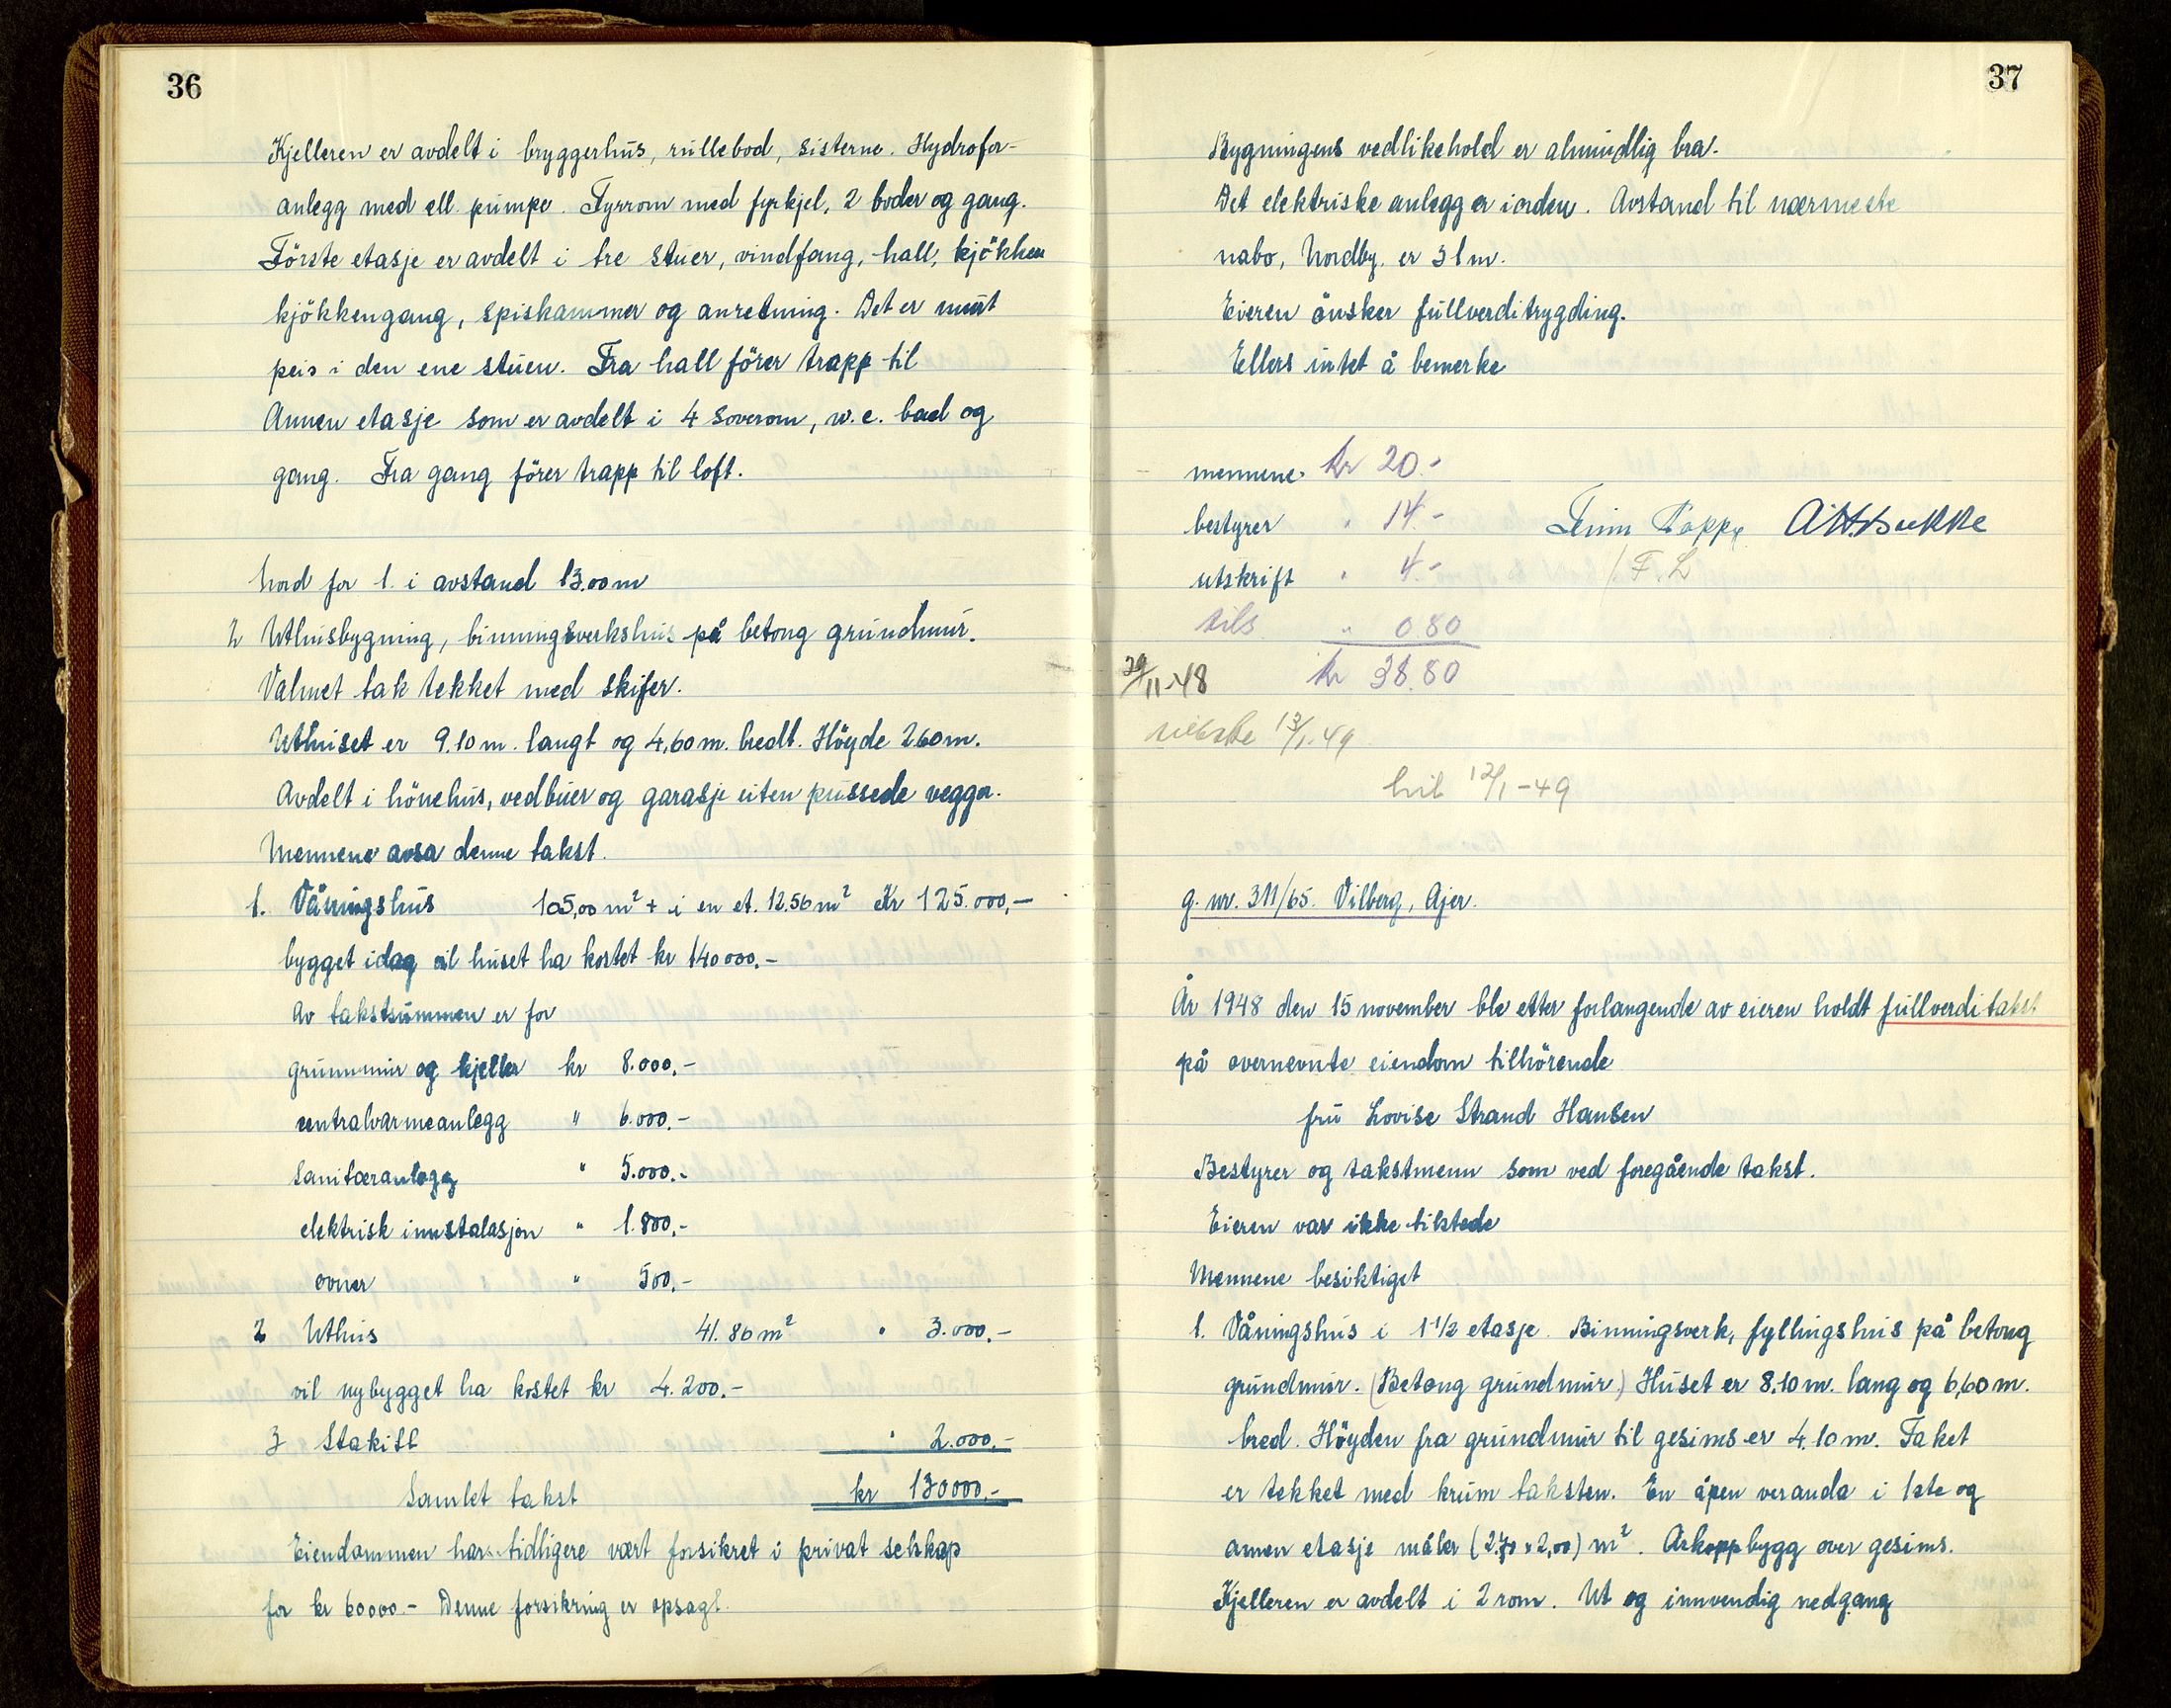 36
Kjelleren er avdelt i bryggerhus, rullebod, sisterne. Hydrofor-
anlegg med ell. pumpe. Fyrrom med fyrkjel, 2 boder og gang.
Förste etasje er avdelt i tre stuer, vindfang, hall, kjökken
kjökkengang, spiskammer og anretning. Det er murt
peis i den ene stuen. Fra hall förer trapp til
Annen etasje som er avdelt i 4 soverom, w.c. bad og
gang. Fra gang förer trapp til loft.
Nord for 1. i avstand 13.00 m
2 Uthusbygning, binningsverkshus på betong grundmur.
Valmet tak tekket med skifer.
Uthuset er 9.10 m. langt og 4,60 m. bredt. Höyde 260 m.
Avdelt i hönehus, vedbuer og garasje uten pussede vegger.
Mennene avsa denne takst.
1. Våningshus 105,00 m² + i en et. 12.56 m² Kr 125.000,-
bygget idag vil huset ha kostet kr 140000.-
Av takstsummen er for
grunnmur og kjeller kr 8.000,-
centralvarmeanlegg " 6.000,-
Sanitæranlegg " 5.000.-
elektrisk innstalasjon " 1.800,-
ovner " 500,-
2 Uthus 41.86 m² " 3.000,-
vil nybygget ha kostet kr 4.200,-
3 Stakitt " 2.000,-
Samlet takst kr 130000,-
Eiendommen har tidligere vært forsikret i privat selskap
for kr 60000.- Denne forsikring er opsagt.
37
Bygningens vedlikehold er almindlig bra.
Det elektriske anlegg er iorden. Avstand til nærmeste
nabo, Nordby, er 31 m.
Eieren önsker fullverditrygding.
Ellers intet å bemerke
mennene kr 20.-
bestyrer " 14.- Finn Poppe A H Bakke
utskrift " 4.- / F. L
" 0.80
29/11-48 kr 38.80
13/1.49
12/1-49
g. nr. 311/65. Vilberg, Ajer.
År 1948 den 15 november ble etter forlangende av eieren holdt fullverditakst
på overnevnte eiendom tilhörende
fru Lovise Strand Hansen
Bestyrer og takstmenn som ved foregående takst.
Eieren var ikke tilstede
Mennene besiktiget
1. Våningshus i 1 1/2 etasje. Binningsverk, fyllingshus på betong
grundmur. (Betong grundmur.) Huset er 8,10 m. lang og 6,60 m.
bred. Höyden fra grundmur til gesims er 4.10 m. Taket
er tekket med krum taksten. En åpen veranda i 1ste og
annen etasje måler (2.70 x 2,00) m². Arkoppbygg over gesims.
Kjelleren er avdelt i 2 rom. Ut og innvendig nedgang